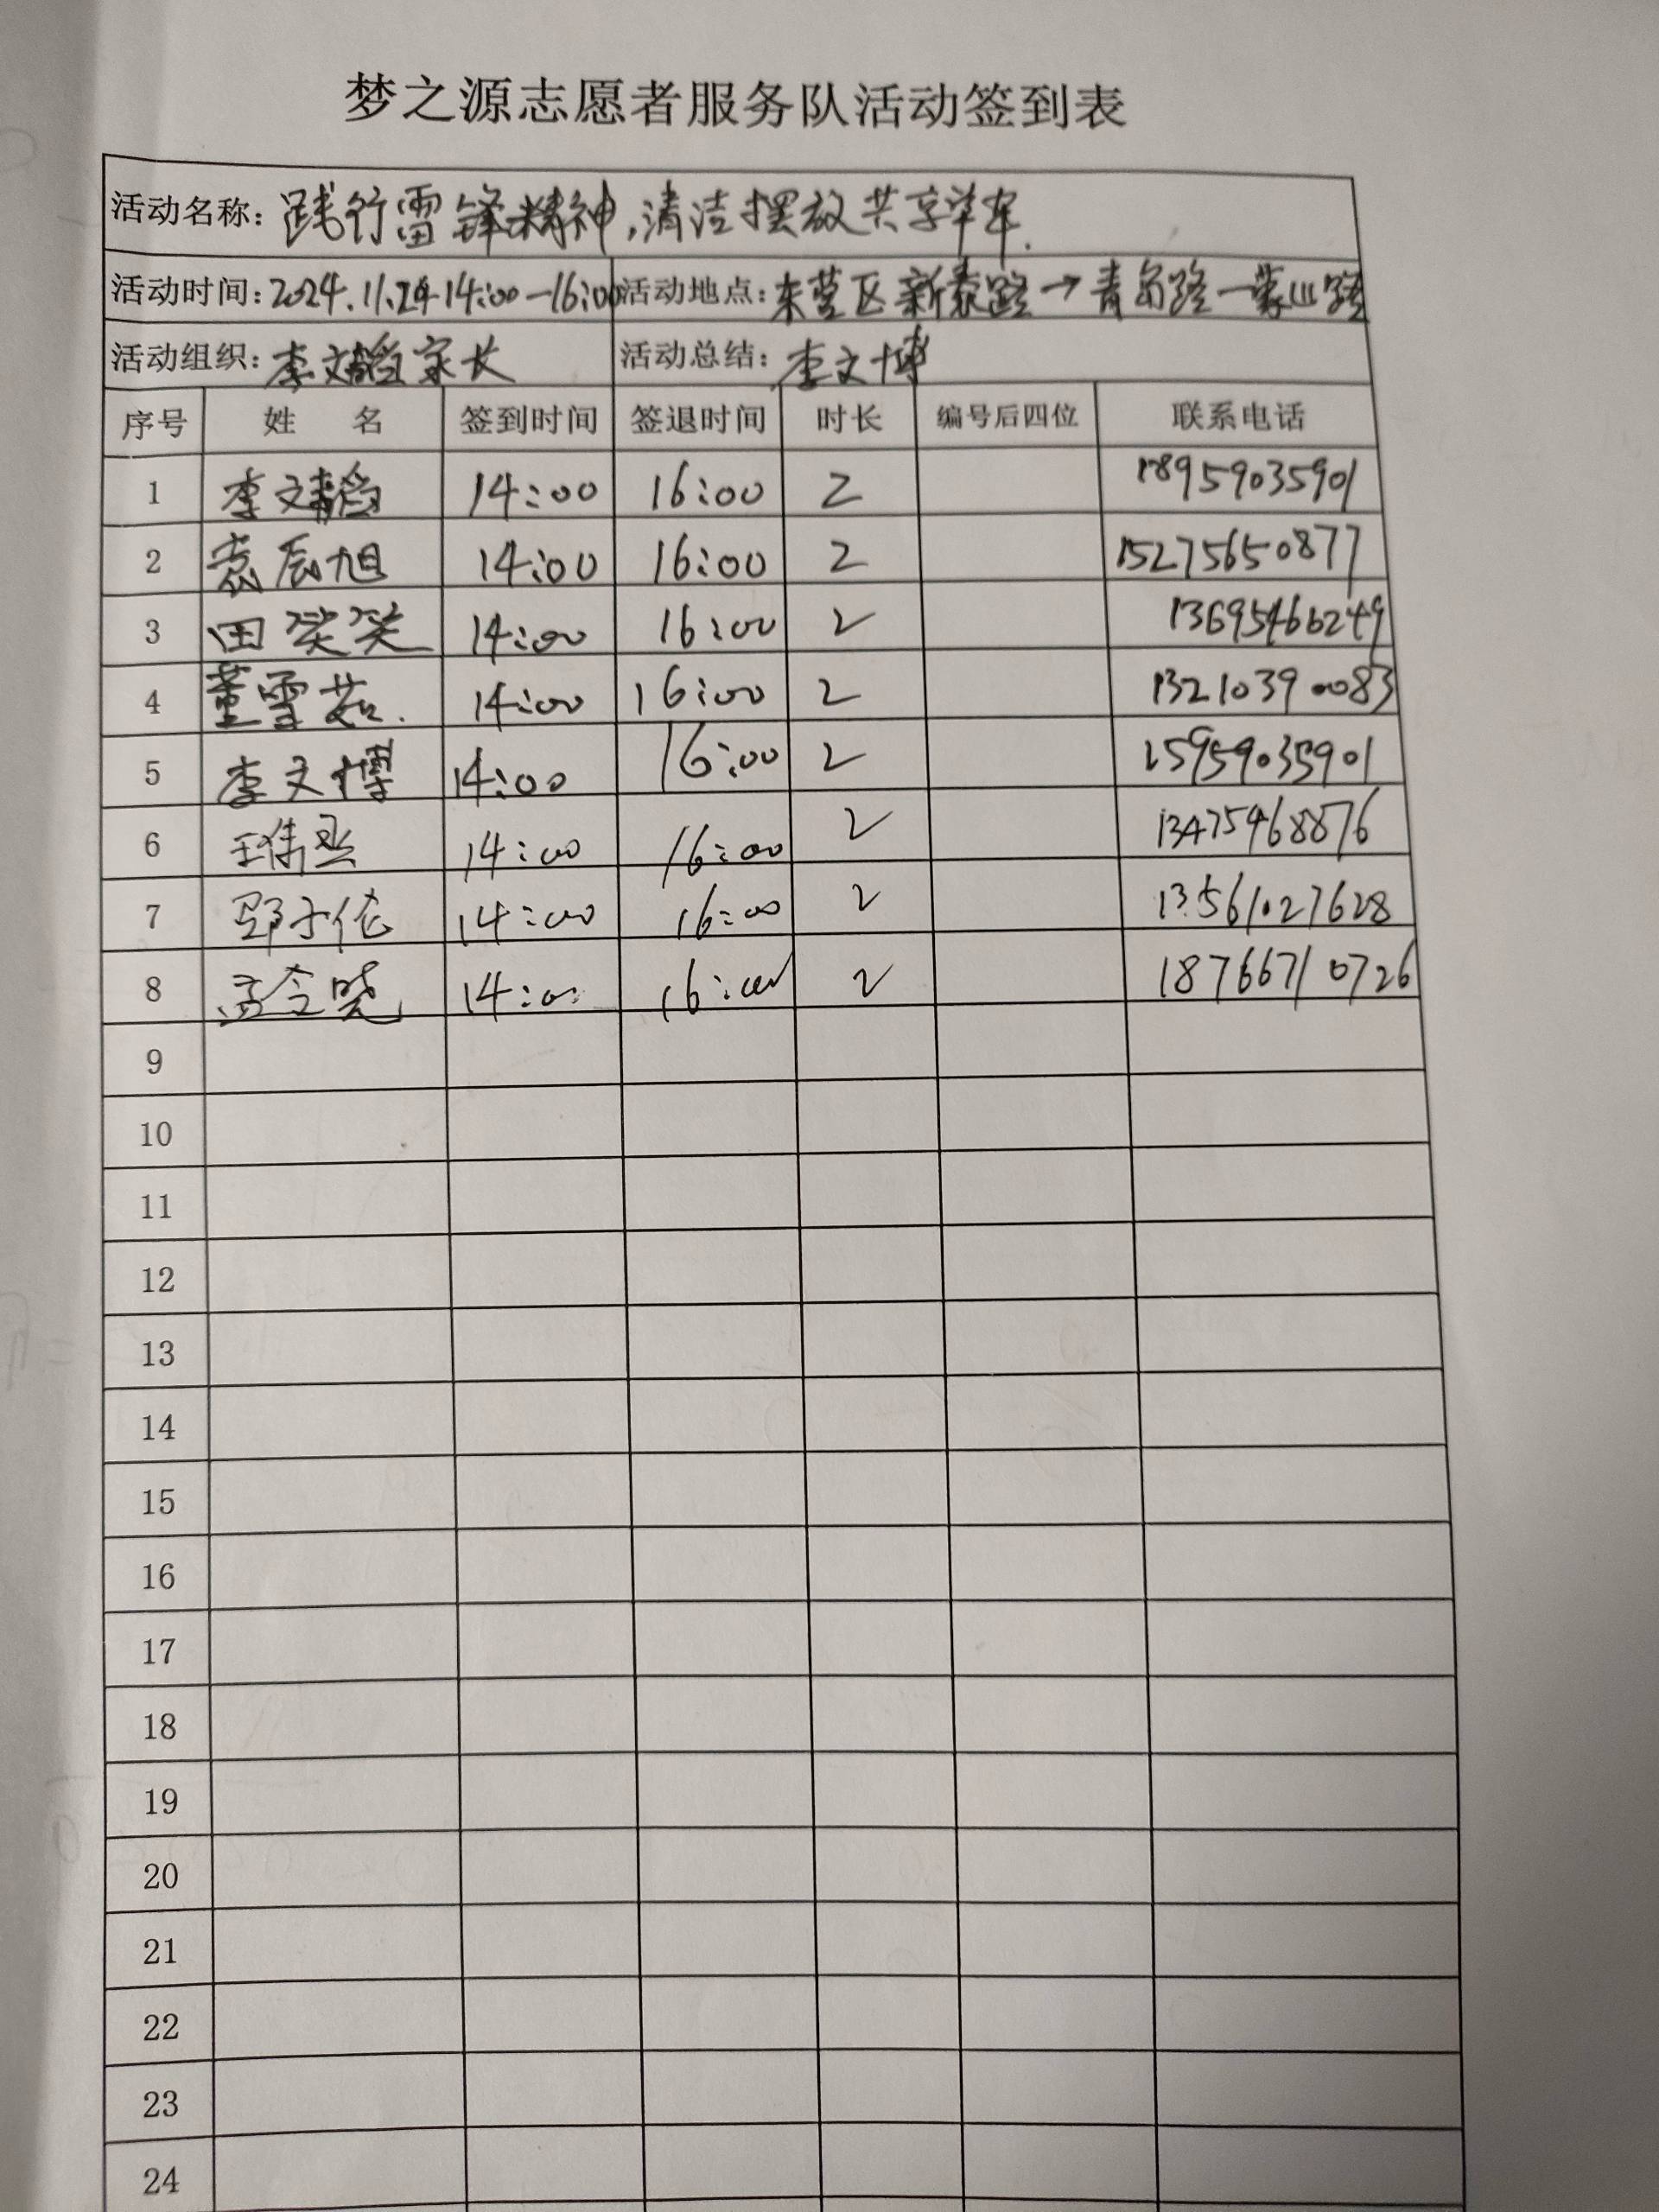 梦之源志愿者服务队活动签到表
活动名称：践行雷锋精神，清洁摆放共享单车.
活动时间：2024.11.24 14:00-16:00 活动地点：东营区新泰路→青岛路—蒙山路
活动组织：李文韬家长 活动总结：李文博
序号 姓名 签到时间 签退时间 时长 编号后四位 联系电话
1 李文韬 14:00 16:00 2 18959035901
2 袁辰旭 14:00 16:00 2 15275650877
3 田笑笑 14:00 16:00 2 13695466249
4 董雪茹. 14:00 16:00 2 13210390083
5 李文博 14:00 16:00 2 15959035901
6 14:00 16:00 2 13475468876
7 14:00 16:00 2 13561027628
8 孟令晓 14:00 16:00 2 18766710726
9
10
11
12
13
14
15
16
17
18
19
20
21
22
23
24